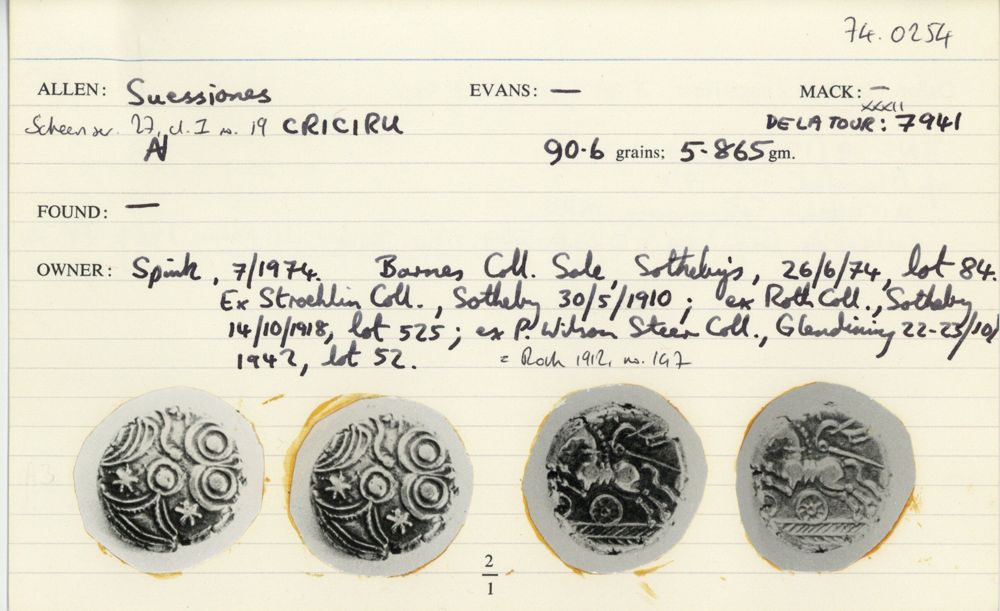 74.0254
ALLEN: Suessiones EVANS: — MACK: —
Scheers sr. 27, cl. I no. 19 CRICIRU DE LA TOUR: XXXII 7941
AV 90·6 grains; 5·865 gm.
FOUND: —
OWNER: Spink, 7/1974. Barnes Coll. Sale, Sotheby's, 26/6/74, lot 84.
Ex Stroehlin Coll., Sotheby 30/5/1910; ex Roth Coll., Sotheby
14/10/1918, lot 525; ex P. Wilson Steer Coll., Glendining 22-23/10/
1942, lot 52. = Roth 1912, no. 147
2
1